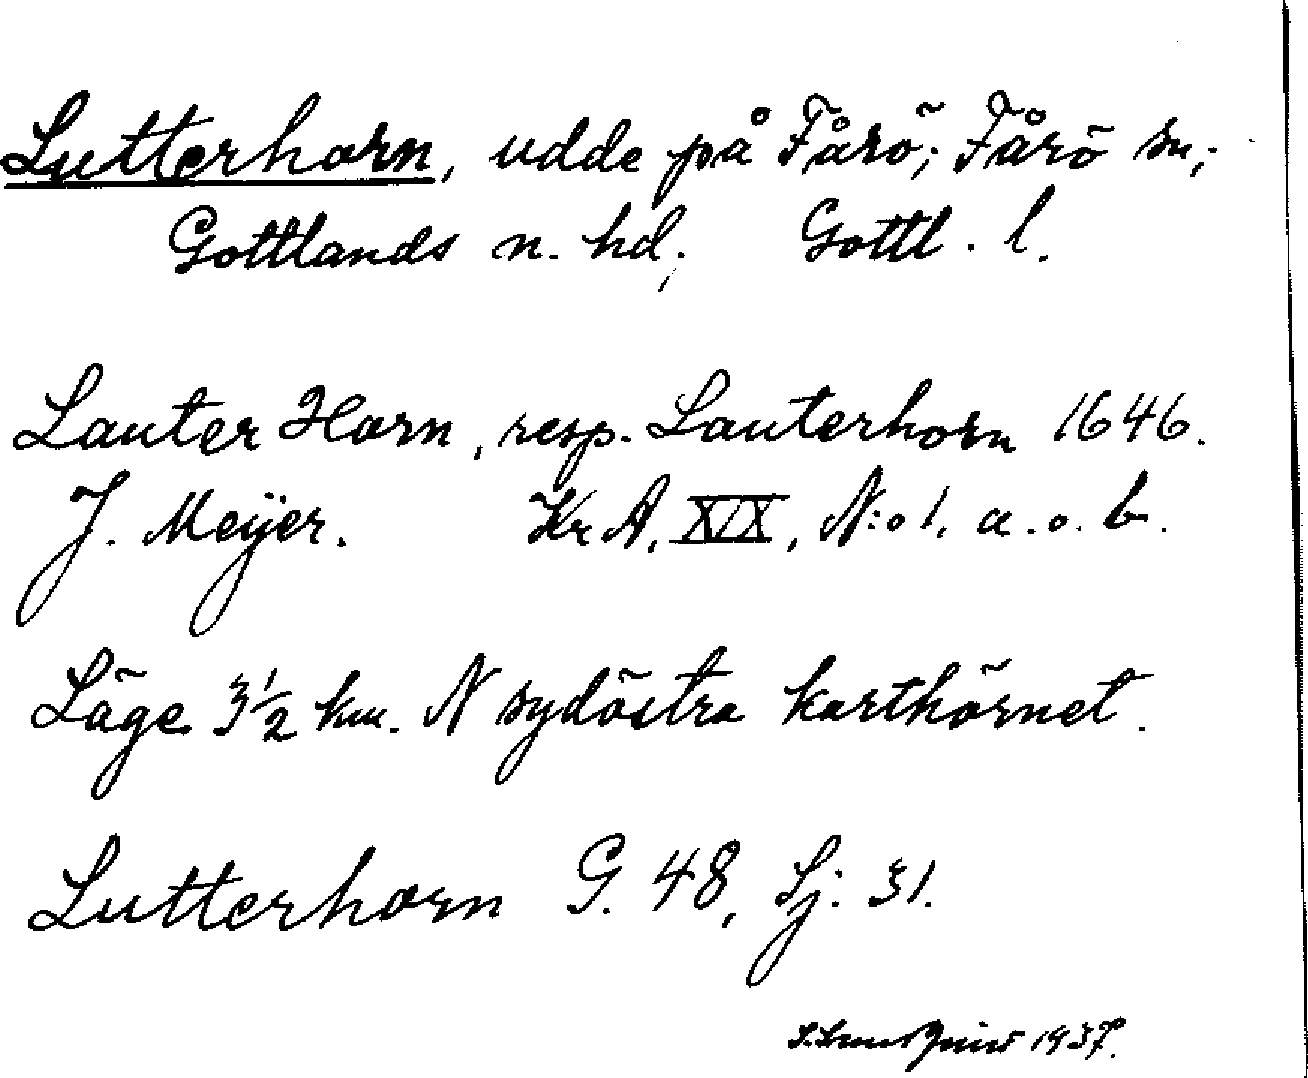 Lutterhorn, udde på Fårö; Fårö sn,;
Gottlands n. hd; Gottl. l.
Lauter Horn, resp. Lauterhorn 1646.
J. Meÿer. Kr A, XIX, N:o 1. a. o. b.
Läge 3½ km. N sydöstra karthörnet.
Lutterhorn G. 48, Sj: 31.
1937.